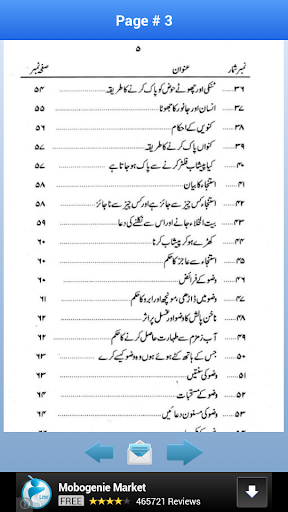 Page # 3
۵
نمبر شمار عنوان صفحہ نمبر
۳۶ ..... ٹنکی اور چھوٹے حوض کو پاک کرنے کا طریقہ ..... ۵۴
۳۷ ..... انسان اور جانور کا جھوٹا ..... ۵۵
۳۸ ..... کنویں کے احکام ..... ۵۶
۳۹ ..... کنواں پاک کرنے کا طریقہ ..... ۵۶
۴۰ ..... کیا پیشاب فلٹر کرنے سے پاک ہو جاتا ہے ..... ۵۷
۴۱ ..... استنجاء کا بیان ..... ۵۸
۴۲ ..... استنجاء کس چیز سے جائز ہے اور کس چیز سے نا جائز ..... ۵۸
۴۳ ..... بیت الخلاء جانے اور اس سے نکلنے کی دعا ..... ۵۹
۴۴ ..... کھڑے ہو کر پیشاب کرنا ..... ۶۰
۴۵ ..... استنجاء سے عاجز کا حکم ..... ۶۰
۴۶ ..... وضو کے فرائض ..... ۶۰
۴۷ ..... وضو میں ڈاڑھی، مونچھ اور ابرو کا حکم ..... ۶۱
۴۸ ..... ناخن پالش کا وضو اور غسل پر اثر ..... ۶۲
۴۹ ..... آب زمزم سے طہارت حاصل کرنے کا حکم ..... ۶۲
۵۰ ..... جس کے ہاتھ کٹے ہوئے ہوں وہ وضو کیسے کرے ..... ۶۳
۵۱ ..... وضو کی سنتیں ..... ۶۳
۵۲ ..... وضو کے مستحبات ..... ۶۴
۵۳ ..... وضو کی مسنون دعائیں ..... ۶۴
Mobogenie Market
FREE 465721 Reviews
Lite